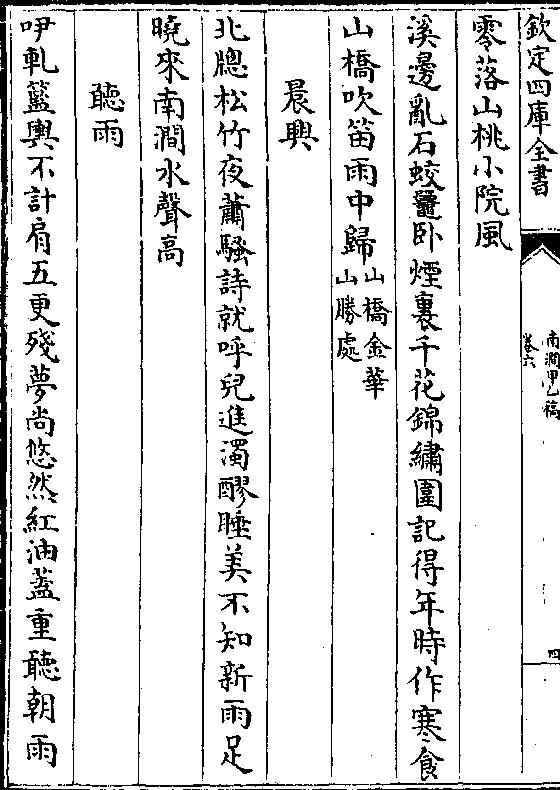 欽定四庫全書
南澗甲乙稿
卷六
四
零落山桃小院風
溪邊亂石蛟鼉卧煙裏千花錦繡圍記得年時作寒食
山橋吹笛雨中歸山橋金華山勝處
晨興
北牕松竹夜蕭騷詩就呼兒進濁醪睡美不知新雨足
曉來南澗水聲高
聽雨
咿軋籃輿不計肩五更殘夢尚悠然紅油蓋重聽朝雨